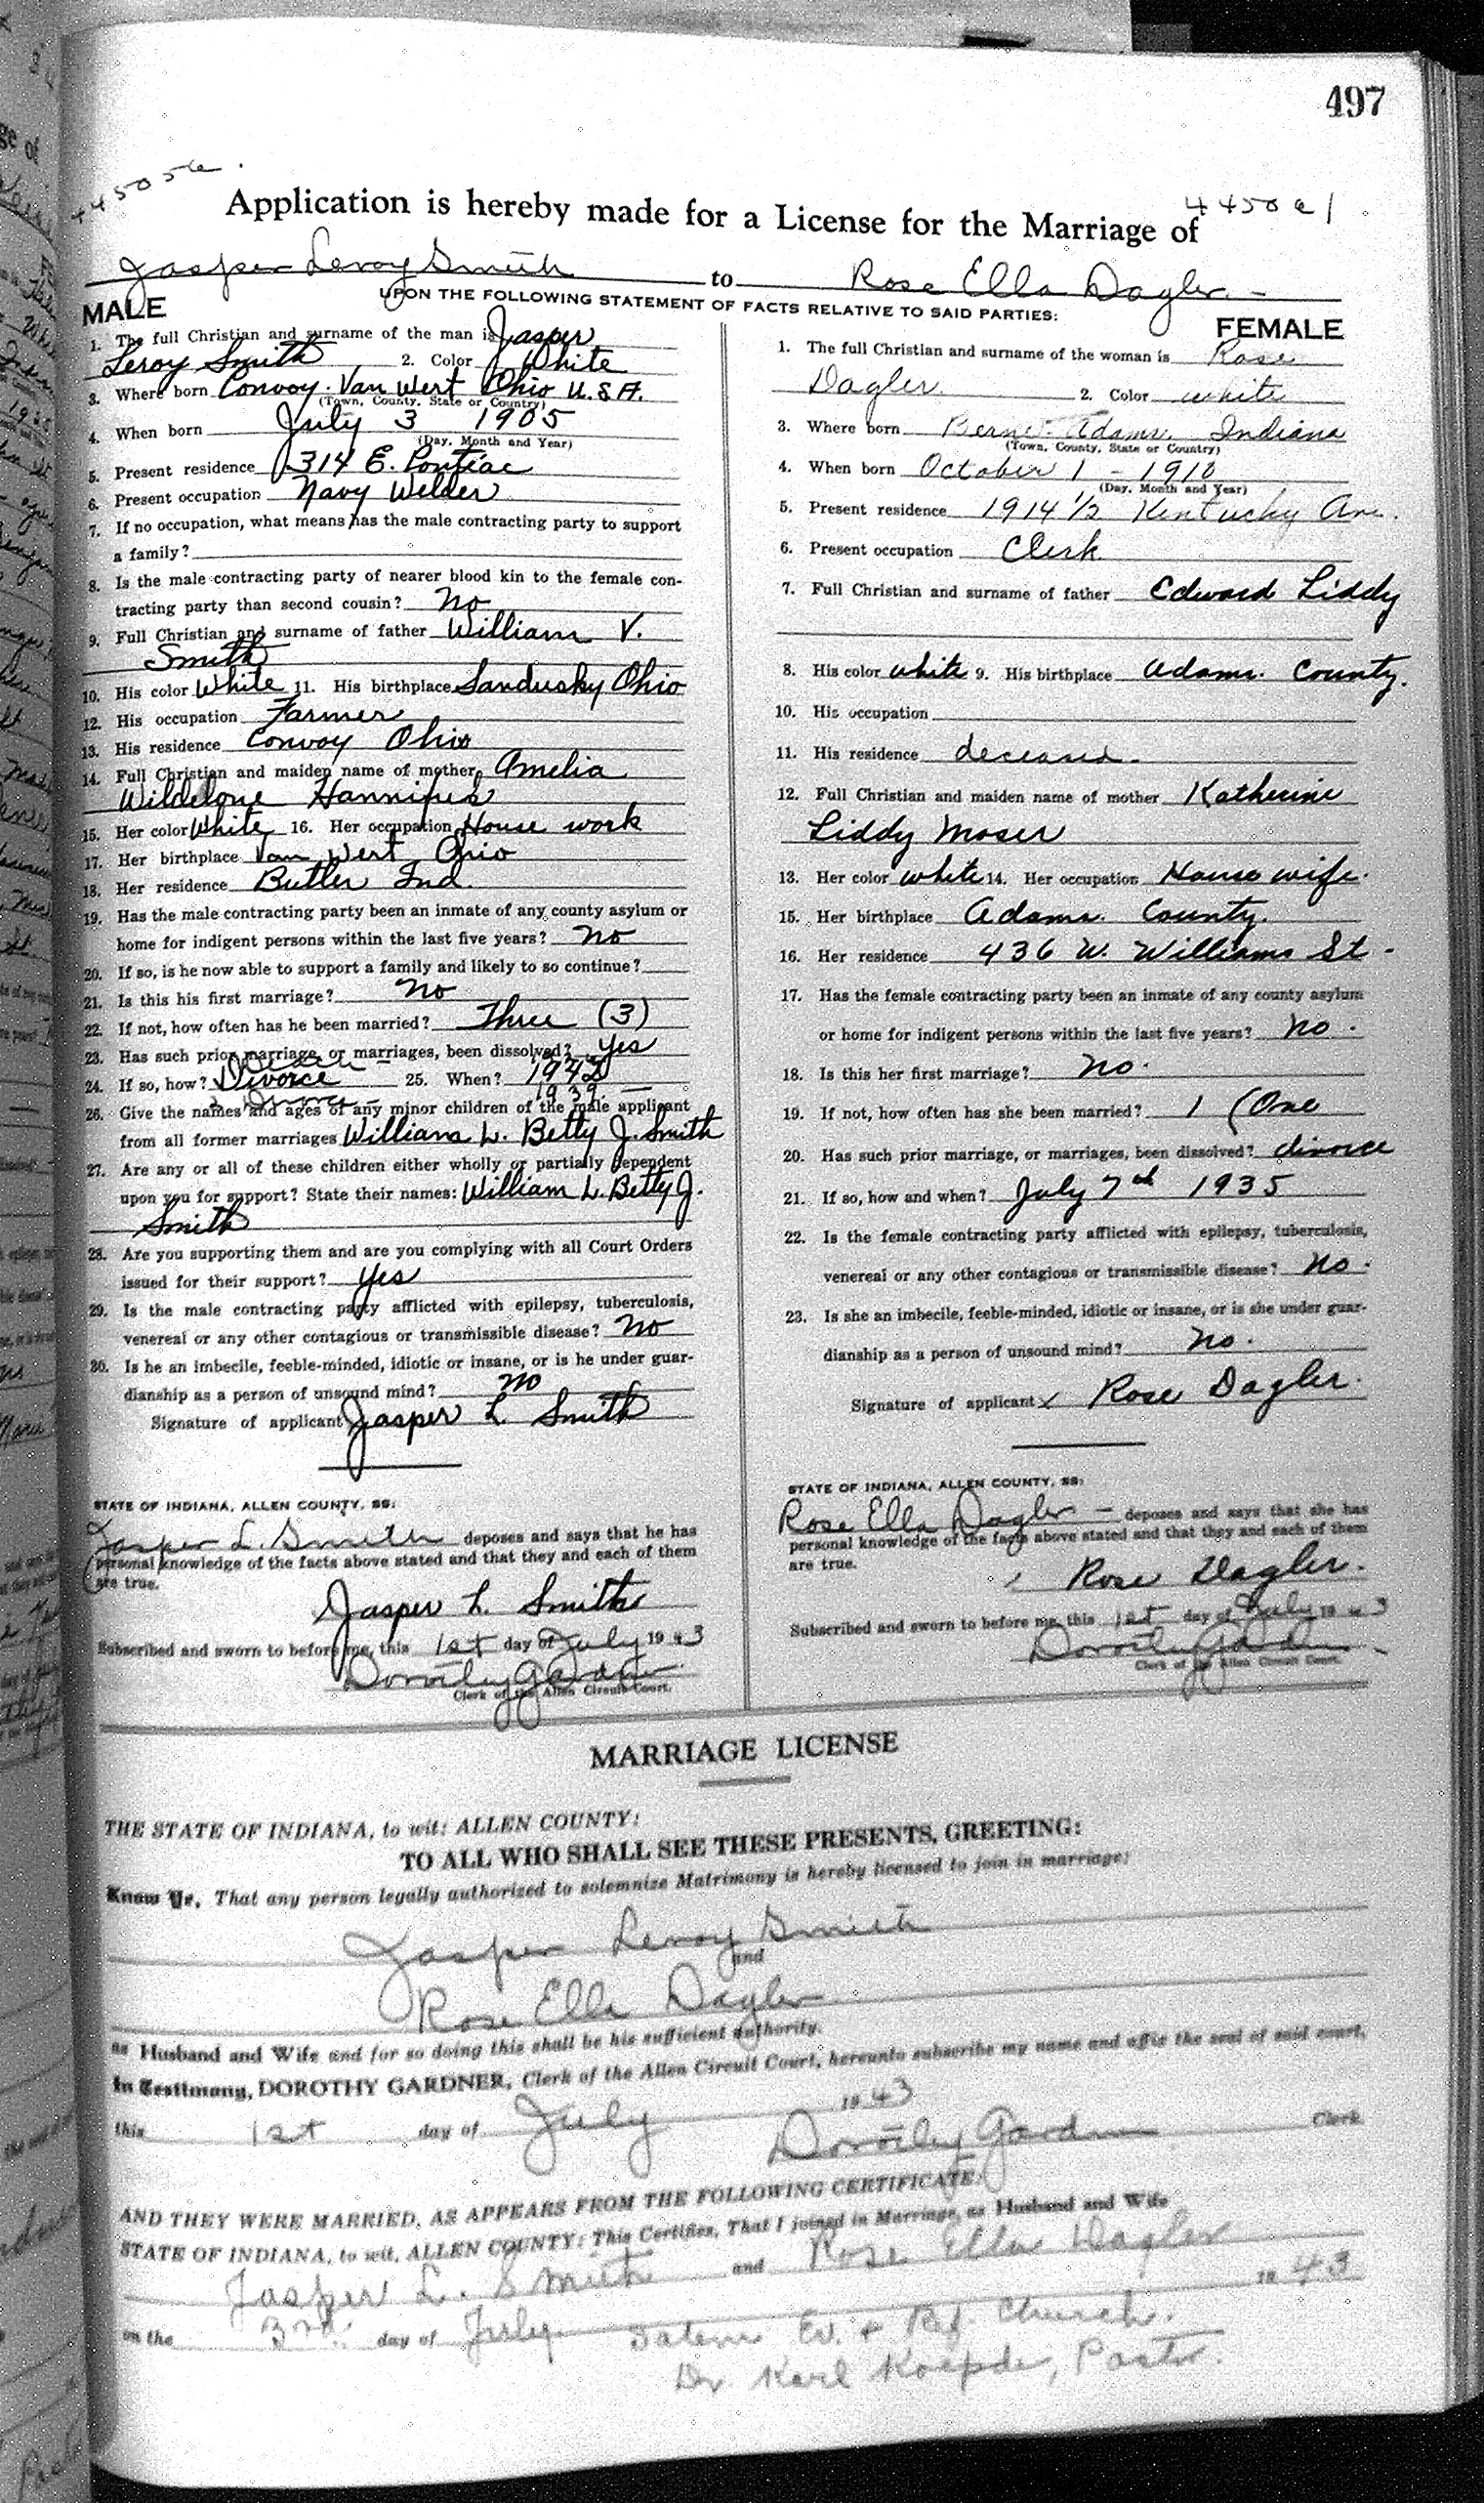 497
Application is hereby made for a License for the Marriage of
Jasper Leroy Smith to Rose Ella Dagler
UPON THE FOLLOWING STATEMENT OF FACTS RELATIVE TO SAID PARTIES:
MALE
1. The full Christian and surname of the man is Jasper
Leroy Smith 2. Color White
3. Where born Convoy. Van Wert Ohio U.S.A.
(Town, County, State or Country)
4. When born July 3 1905
(Day, Month and Year)
5. Present residence 1314 E. Pontiac
6. Present occupation Navy Welder
7. If no occupation, what means has the male contracting party to support
a family?
8. Is the male contracting party of nearer blood kin to the female con-
tracting party than second cousin? No
9. Full Christian and surname of father William V.
Smith
10. His color White 11. His birthplace Sandusky Ohio
12. His occupation Farmer
13. His residence Convoy Ohio
14. Full Christian and maiden name of mother Amelia
15. Her color White 16. Her occupation House work
17. Her birthplace Van Wert Ohio
18. Her residence Butler Ind.
19. Has the male contracting party been an inmate of any county asylum or
home for indigent persons within the last five years? No
20. If so, is he now able to support a family and likely to so continue?
21. Is this his first marriage? No
22. If not, how often has he been married? Three (3)
23. Has such prior marriage, or marriages, been dissolved? Yes
Death
24. If so, how? Divorce 25. When? 1942
2 Divorce 1939. —
26. Give the names and ages of any minor children of the male applicant
from all former marriages William L. Betty J. Smith
27. Are any or all of these children either wholly or partially dependent
upon you for support? State their names: William L. Betty J.
Smith
28. Are you supporting them and are you complying with all Court Orders
issued for their support? Yes
29. Is the male contracting party afflicted with epilepsy, tuberculosis,
venereal or any other contagious or transmissible disease? No
30. Is he an imbecile, feeble-minded, idiotic or insane, or is he under guar-
dianship as a person of unsound mind? No
Signature of applicant Jasper L. Smith
STATE OF INDIANA, ALLEN COUNTY, SS:
Jasper L. Smith deposes and says that he has
personal knowledge of the facts above stated and that they and each of them
are true.
Jasper L. Smith
Subscribed and sworn to before me, this 1st day of July 1943
Dorothy Gardner
Clerk of the Allen Circuit Court.
FEMALE
1. The full Christian and surname of the woman is Rose
Dagler. 2. Color white
3. Where born Berne. Adams. Indiana
(Town, County, State or Country)
4. When born October 1 - 1910
(Day, Month and Year)
5. Present residence 1914 1/2 Kentucky Ave.
6. Present occupation Clerk
7. Full Christian and surname of father Edward Liddy
8. His color white 9. His birthplace Adams. County.
10. His occupation
11. His residence deceased.
12. Full Christian and maiden name of mother Katherine
Liddy Moser
13. Her color white 14. Her occupation House wife.
15. Her birthplace Adams. County.
16. Her residence 436 W. Williams St.
17. Has the female contracting party been an inmate of any county asylum
or home for indigent persons within the last five years? No.
18. Is this her first marriage? No.
19. If not, how often has she been married? 1 (One
20. Has such prior marriage, or marriages, been dissolved? divorce
21. If so, how and when? July 7th 1935
22. Is the female contracting party afflicted with epilepsy, tuberculosis,
venereal or any other contagious or transmissible disease? No.
23. Is she an imbecile, feeble-minded, idiotic or insane, or is she under guar-
dianship as a person of unsound mind? No.
Signature of applicant x Rose Dagler.
STATE OF INDIANA, ALLEN COUNTY, SS:
Rose Ella Dagler — deposes and says that she has
personal knowledge of the facts above stated and that they and each of them
are true.
Rose Dagler.
Subscribed and sworn to before me, this 1st day of July 1943
Dorothy Gardner
Clerk of the Allen Circuit Court.
MARRIAGE LICENSE
THE STATE OF INDIANA, to wit: ALLEN COUNTY:
TO ALL WHO SHALL SEE THESE PRESENTS, GREETING:
Know Ye, That any person legally authorized to solemnize Matrimony is hereby licensed to join in marriage:
Jasper Leroy Smith
and
Rose Ella Dagler
as Husband and Wife and for so doing this shall be his sufficient authority.
In Testimony, DOROTHY GARDNER, Clerk of the Allen Circuit Court, hereunto subscribe my name and affix the seal of said court,
this 1st day of July 1943
Dorothy Gardner Clerk
AND THEY WERE MARRIED, AS APPEARS FROM THE FOLLOWING CERTIFICATE:
STATE OF INDIANA, to wit, ALLEN COUNTY: This Certifies, That I joined in Marriage, as Husband and Wife
Jasper L. Smith and Rose Ella Dagler
on the 3rd. day of July 1943
Salem Ev. + Ref Church.
Dr. Karl Koepde, Pastor.